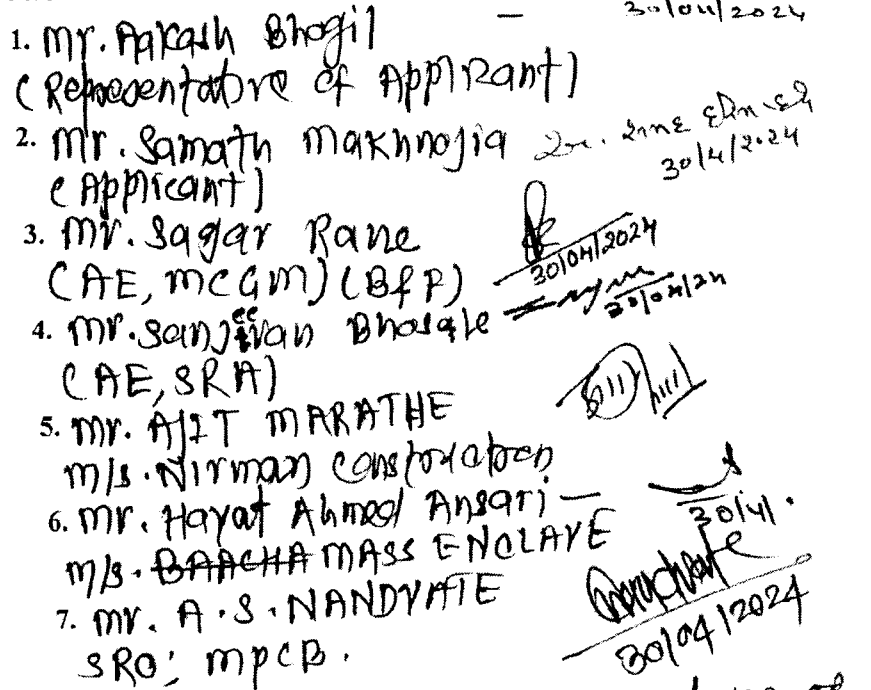 30/04/2024
1. Mr. Aakash Bhogil –
(Representative of Applicant)
2. Mr. Samath Makhnojia
30/4/2024
(Applicant)
3. Mr. Sagar Rane
(AE, MCGM) (B&P)
30/04/2024
4. Mr. Sanjeevan Bhosale
30/04/24
(AE, SRA)
5. Mr. AJIT MARATHE
M/s. Nirman Construction
6. Mr. Hayat Ahmed Ansari –
30/4/.
M/s. BAACHA MASS ENCLAVE
7. Mr. A.S. NANDVATE
30/04/2024
SRO: MPCB.